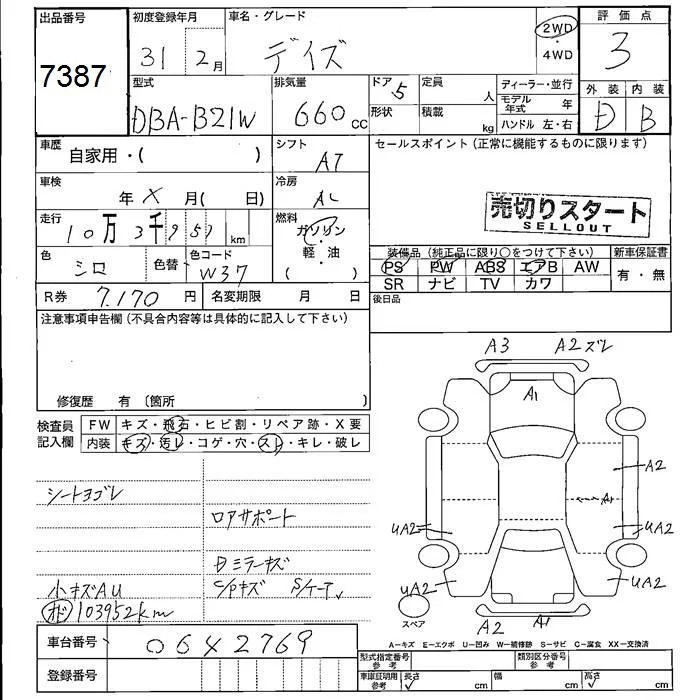 出品番号 初度登録年月 車名・グレード 評価点
7387 31年 2月 デイズ 2WD・4WD 3
型式 排気量 ドア 5 定員 人 ディーラー・並行 外装 内装
DBA-B21W 660cc 形状 積載 kg モデル年式 年 D B
ハンドル 左・右
車歴 自家用・( ) シフト AT セールスポイント(正常に機能するものに限ります)
車検 年 X 月( 日) 冷房 AC
売切りスタート
SELLOUT
走行 10万3千951km 燃料 ガソリン・軽・油 ( )
色 シロ 色替 色コード W37 装備品(純正品に限り○をつけて下さい) 新車保証書
PS PW ABS エアB AW 有・無
SR ナビ TV カワ
R券 7.170円 名変期限 月 日 後日品
注意事項申告欄(不具合内容等は具体的に記入して下さい)
修復歴 有〔箇所 〕
検査員記入欄 FW キズ・飛石・ヒビ割・リペア跡・X要
内装 キズ・汚レ・コゲ・穴・スレ・キレ・破レ
A3 A2ズレ
A1
A2
A
UA2 UA2
UA2 UA2
スペア
A2 A1
シートヨゴレ
ロアサポート
Dミラーキズ
小キズAU C/Pキズ S/ケース
オド 103952km
A-キズ E-エクボ U-凹み W-補修跡 S-サビ C-腐食 XX-交換済
車台番号 0642769 型式指定番号 参考 類別区分番号 参考
登録番号 車庫証明用 参考 長さ cm 幅 cm 高さ cm